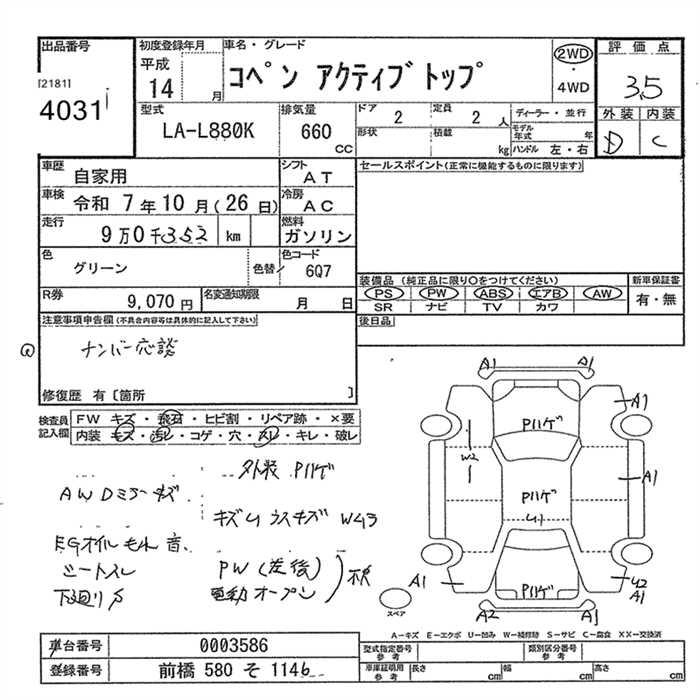 出品番号
[2181]
4031
初度登録年月
平成
14 月
車名・グレード
コペン アクティブトップ
2WD
・
4WD
評価点
3.5
外装 内装
D C
型式
LA-L880K
排気量
660
cc
ドア
2
定員
2 人
形状
積載
kg
ディーラー・並行
モデル年式 年
ハンドル 左・右
車歴
自家用
シフト
AT
車検
令和 7年10月(26日)
冷房
AC
走行
9万0千352 km
燃料
ガソリン
色
グリーン
色替/
色コード
6Q7
R券
9,070円
名変通知期限
月 日
セールスポイント(正常に機能するものに限ります)
装備品 (純正品に限り○をつけてください)
PS PW ABS エアB AW
SR ナビ TV カワ
新車保証書
有・無
後日品
注意事項申告欄(不具合内容等は具体的に記入して下さい)
ナンバー応談
修復歴 有〔箇所 〕
検査員記入欄
FW キズ・飛石・ヒビ割・リペア跡・×要
内装 キズ・汚レ・コゲ・穴・スレ・キレ・破レ
外装 Pハゲ
AWDミラーキズ
キズUうスキズ W小3
EGオイルもれ 音、
シートスレ
下廻りサ
PW(左後)
電動オープン
)不良
A1 A1
A1
Pハゲ
W2
A1
Pハゲ
U1
A1
Pハゲ
U2
A1
A2 A1
スペア
A-キズ E-エクボ U-凹み W-補修跡 S-サビ C-腐食 XX-交換済
車台番号
0003586
登録番号
前橋 580 そ 1146
型式指定番号
参考
類別区分番号
参考
車庫証明用
参考
長さ cm
幅 cm
高さ cm